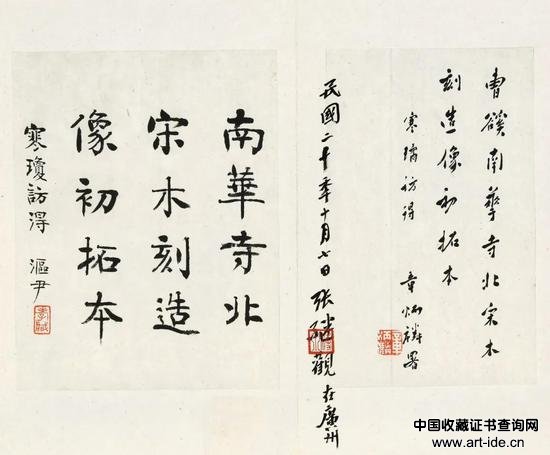 曹磎南華寺北宋木
刻造像初拓本
寒璚訪得 章炳麟署
民國二十年十月七日張繼觀在廣州
南華寺北
宋木刻造
像初拓本
寒瓊訪得 漚尹
孝臧
中国收藏证书查询网
www.art-ide.cn